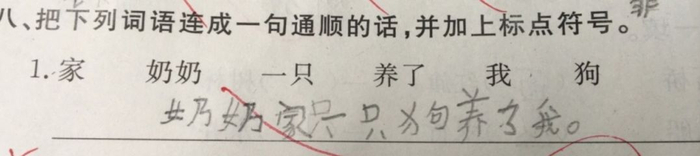 八、把下列词语连成一句通顺的话,并加上标点符号。
1.家 奶奶 一只 养了 我 狗
奶奶家只一只狗养了我。